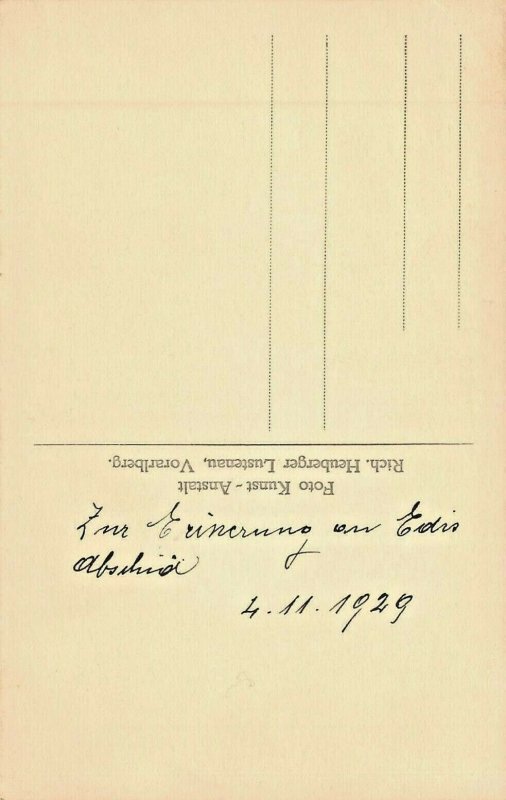 Rich. Heuberger Lustenau, Vorarlberg.
Foto Kunst - Anstalt
Zur Erinnerung an Edis
Abschid
4.11.1929